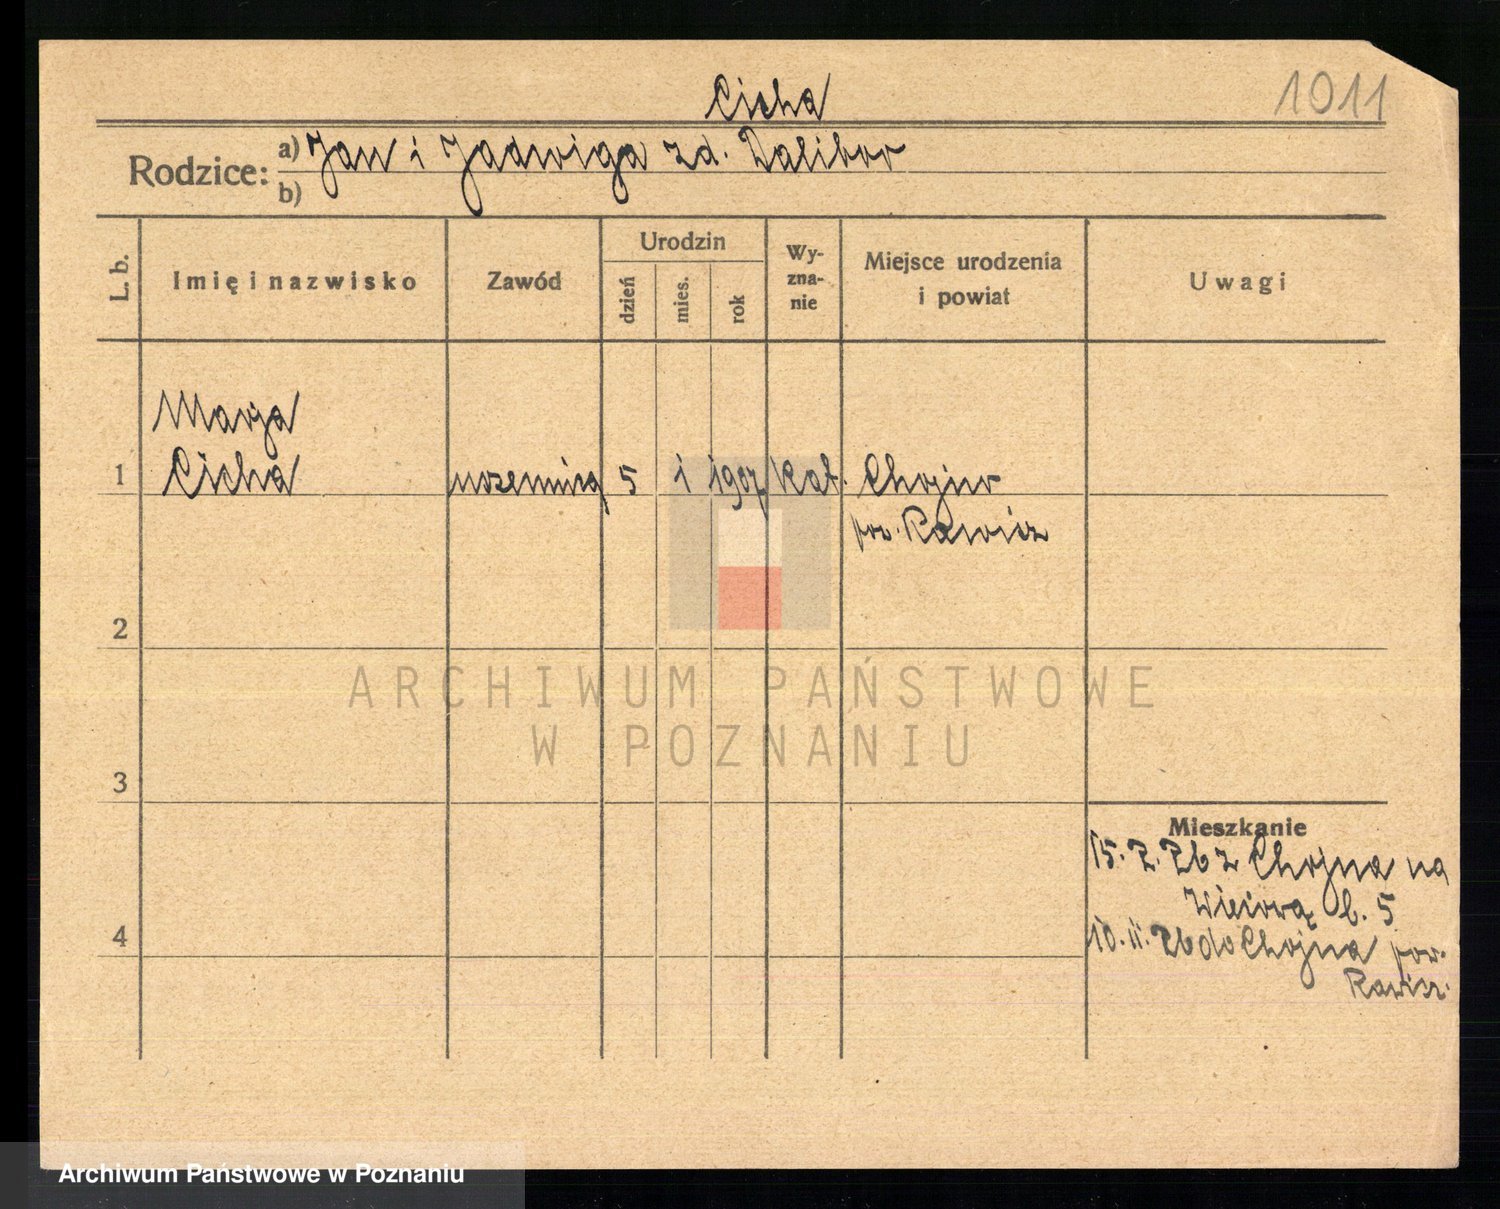 Cicha
1011
Rodzice:
a) Jan i Jadwiga zd. Dalibor
b)
L. b.
Imię i nazwisko
Zawód
Urodzin
dzień
mies.
rok
Wy-
zna-
nie
Miejsce urodzenia
i powiat
Uwagi
Marja
1 Cicha 5 1 1907 kat. Chojno
pow. Rawicz
2
3
4
Mieszkanie
15. 2. 26 z Chojna na
b. 5
10. 11. 26 do Chojna pow.
Rawicz.
ARCHIWUM PAŃSTWOWE
W POZNANIU
Archiwum Państwowe w Poznaniu